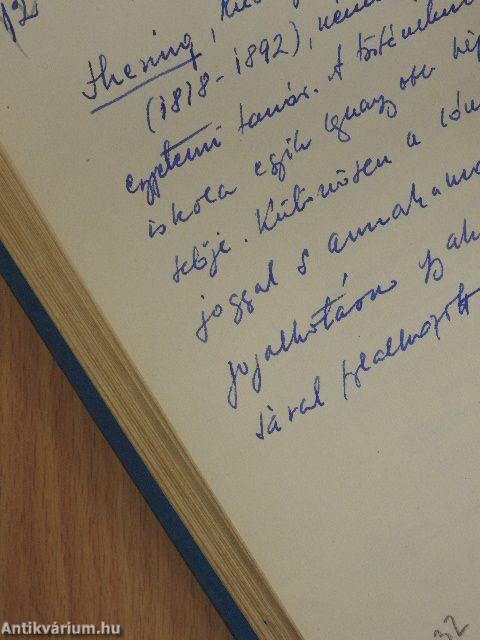 12
Ihering,
(1818-1892), német
egyetemi tanár. A történelmi
iskola egyik legnagyobb kép
selője. Különösen a róm
joggal s annak a mo
jogalkotásra
tával foglalkozott
32
Antikvárium.hu